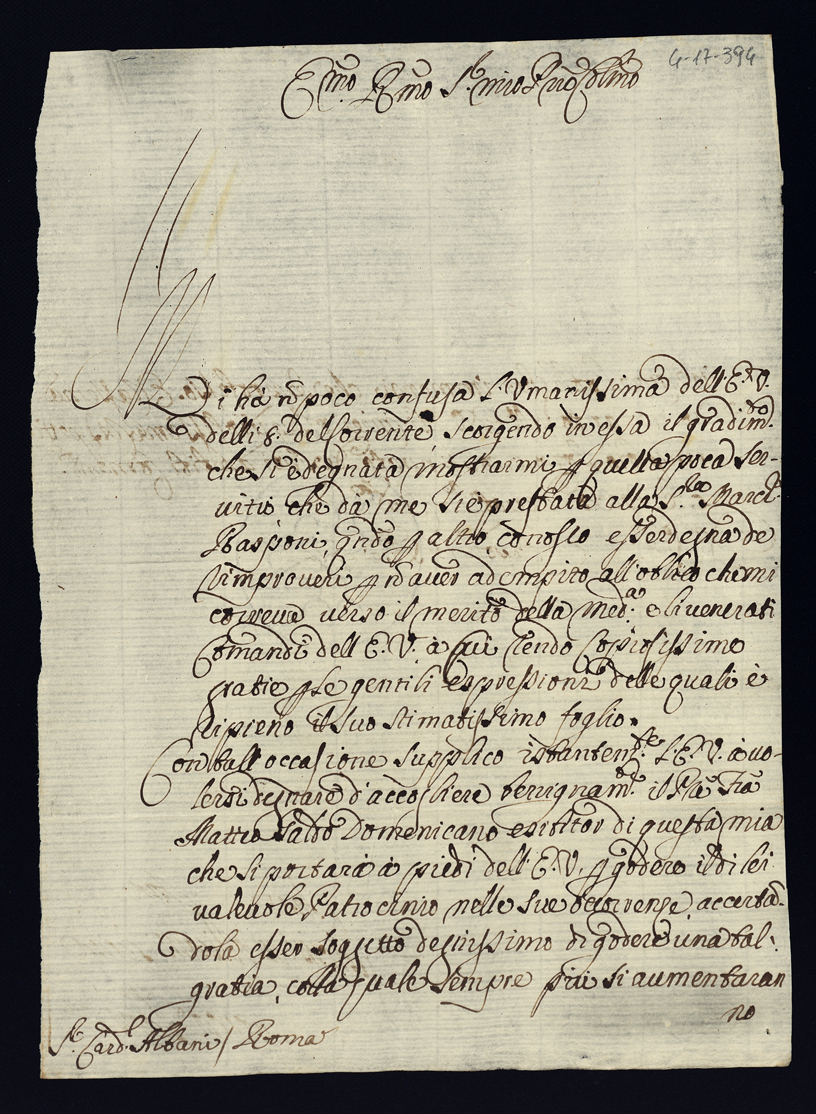 4-17-394
E.mo R.mo S.r mio P̃rõ Col.mo
Mi hà ñ poco confusa l'Vmanissima dell'E.V.
delli 8. del corrente, scorgendo in essa il gradim.to
che si è degnata mostrarmi ꝑ quella poca ser-
uitù che dà me si è prestata alla S.ra March.
Rasponi, q̃ndo ꝑ altro conosco esser degna de
rimproueri ꝑ ñ auer adempito all'obligo che mi
correua verso il merito della med.a e li venerati
Comandi dell'E.V. à cui rendo copiosissime
gratie ꝑ le gentili espressioni delle quali è
ripieno il suo stimatissimo foglio.
Con tall'occasione supplico istantem.te l'E.V. à uo-
lersi degnare d'accogliere benignam.te il P̃re Fra
Matteo Domenicano esibitor di questa mia
che si portarà à piedi dell'E.V. ꝑ godere il di lei
valeuole Patrocinio nelle sue occorrenze, accertan-
dola esser soggetto degnissimo di godere una tal
gratia, colla quale sempre più si aumentaran
no
S.r Card.l Albani / Roma